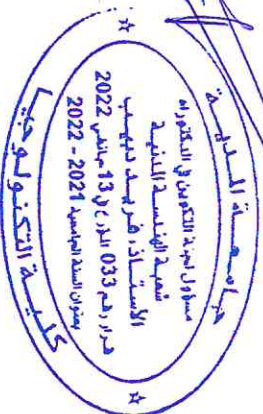 جامعة المدية
مسؤول لجنة التكوين في الدكتوراه
شعبة الهندسة المدنية
الأستاذ: فريد دبيب
قرار رقم 033 المؤرخ في 13 جانفي 2022
بعنوان السنة الجامعية 2021 - 2022
كلية التكنولوجيا